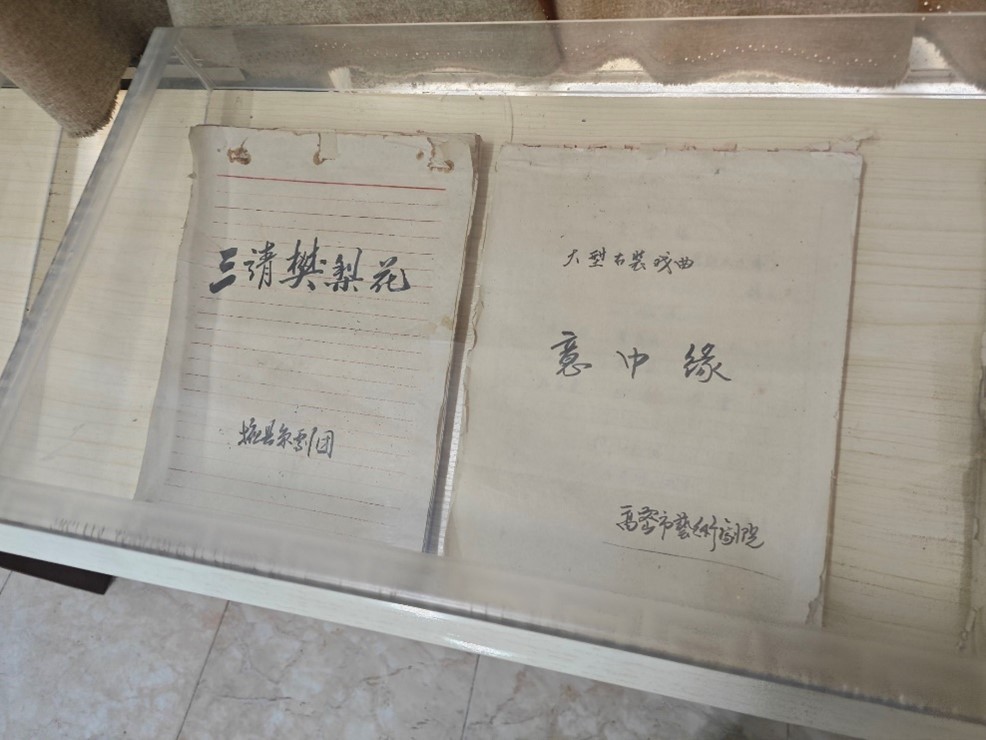 三请樊梨花
掖县京剧团
大型古装戏曲
意中缘
高密市藝術剧院